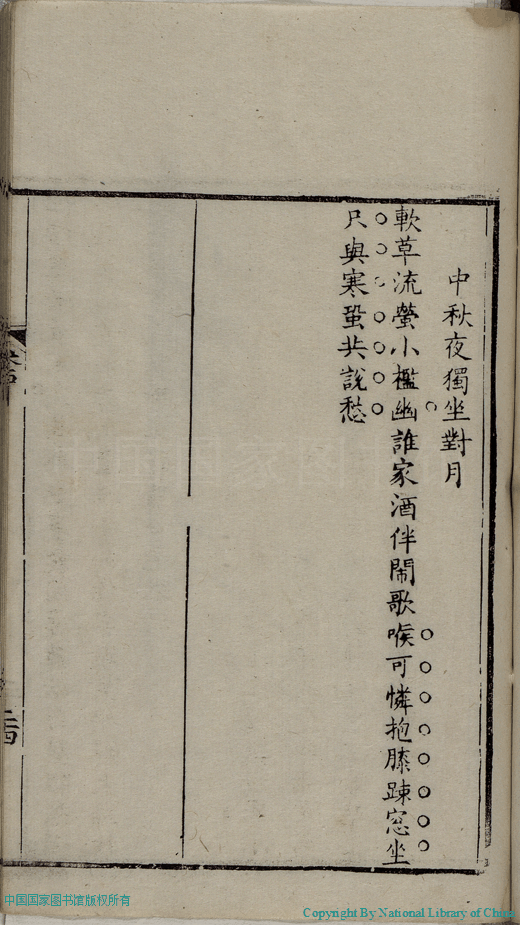 中秋夜獨坐對月
軟草流螢小檻幽誰家酒伴鬧歌喉可憐抱膝疎窓坐
尺與寒蛩共說愁
中国国家图书馆版权所有
Copyright By National Library of China